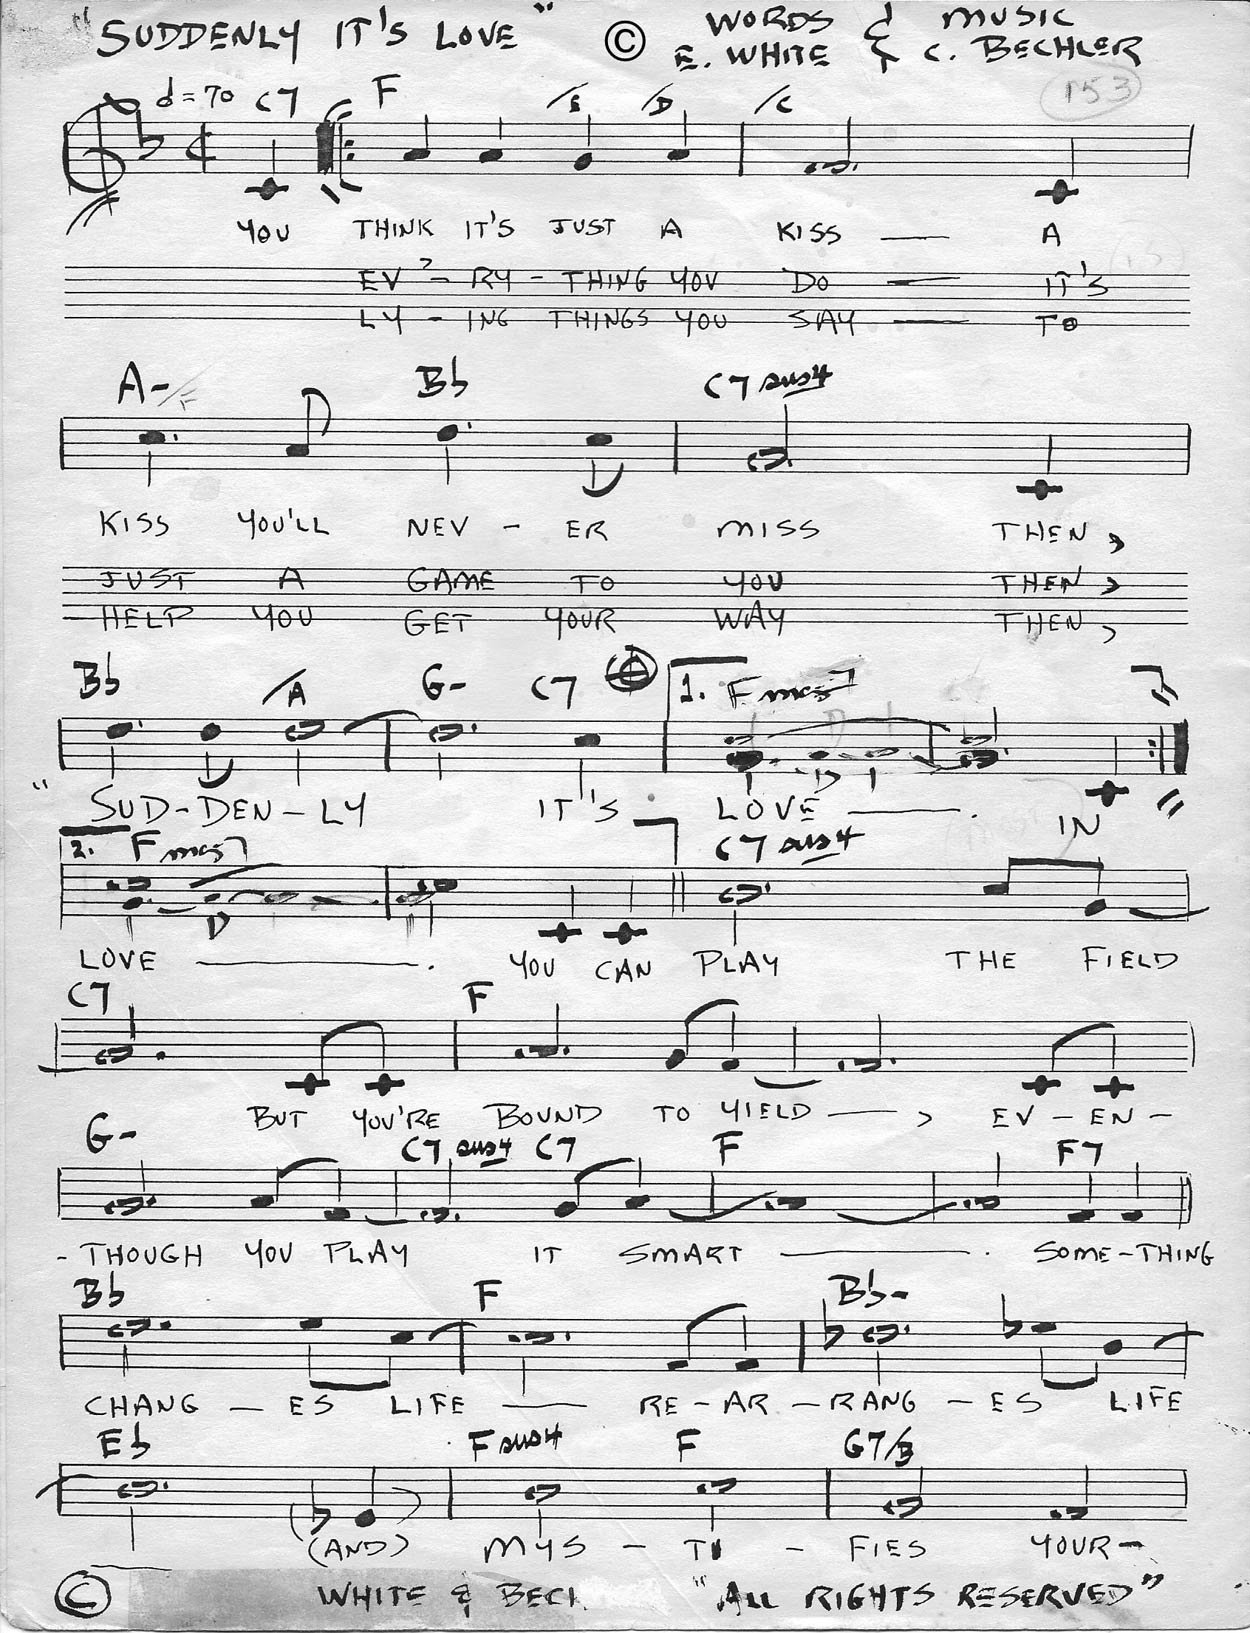 "SUDDENLY IT'S LOVE" © WORDS & MUSIC
E. WHITE & C. BECHLER
153
𝅗𝅥 = 70 C7 F /E /D /C
YOU THINK IT'S JUST A KISS — A
EV'-RY-THING YOU DO — IT'S
LY-ING THINGS YOU SAY — TO
A-/F Bb C7 sus4
KISS YOU'LL NEV-ER MISS THEN,
JUST A GAME TO YOU THEN,
HELP YOU GET YOUR WAY THEN,
Bb /A G- C7 1. F maj7
"SUD-DEN-LY IT'S LOVE —. IN
2. F maj7 C7 sus4
LOVE —. YOU CAN PLAY THE FIELD
C7 F
BUT YOU'RE BOUND TO YIELD —, EV-EN-
G- C7 sus4 C7 F F7
-THOUGH YOU PLAY IT SMART —. SOME-THING
Bb F Bb-
CHANG-ES LIFE — RE-AR-RANG-ES LIFE
Eb F sus4 F G7/B
(AND) MYS-TI-FIES YOUR-
© WHITE & BECH "ALL RIGHTS RESERVED"